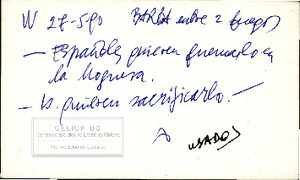 W 27-5-90 BARBA entre 2 fuegos
— Españoles quieren quemarlo en
la hoguera.
— Is. quieren sacrificarlo. —
CELICH UC
A USADOS